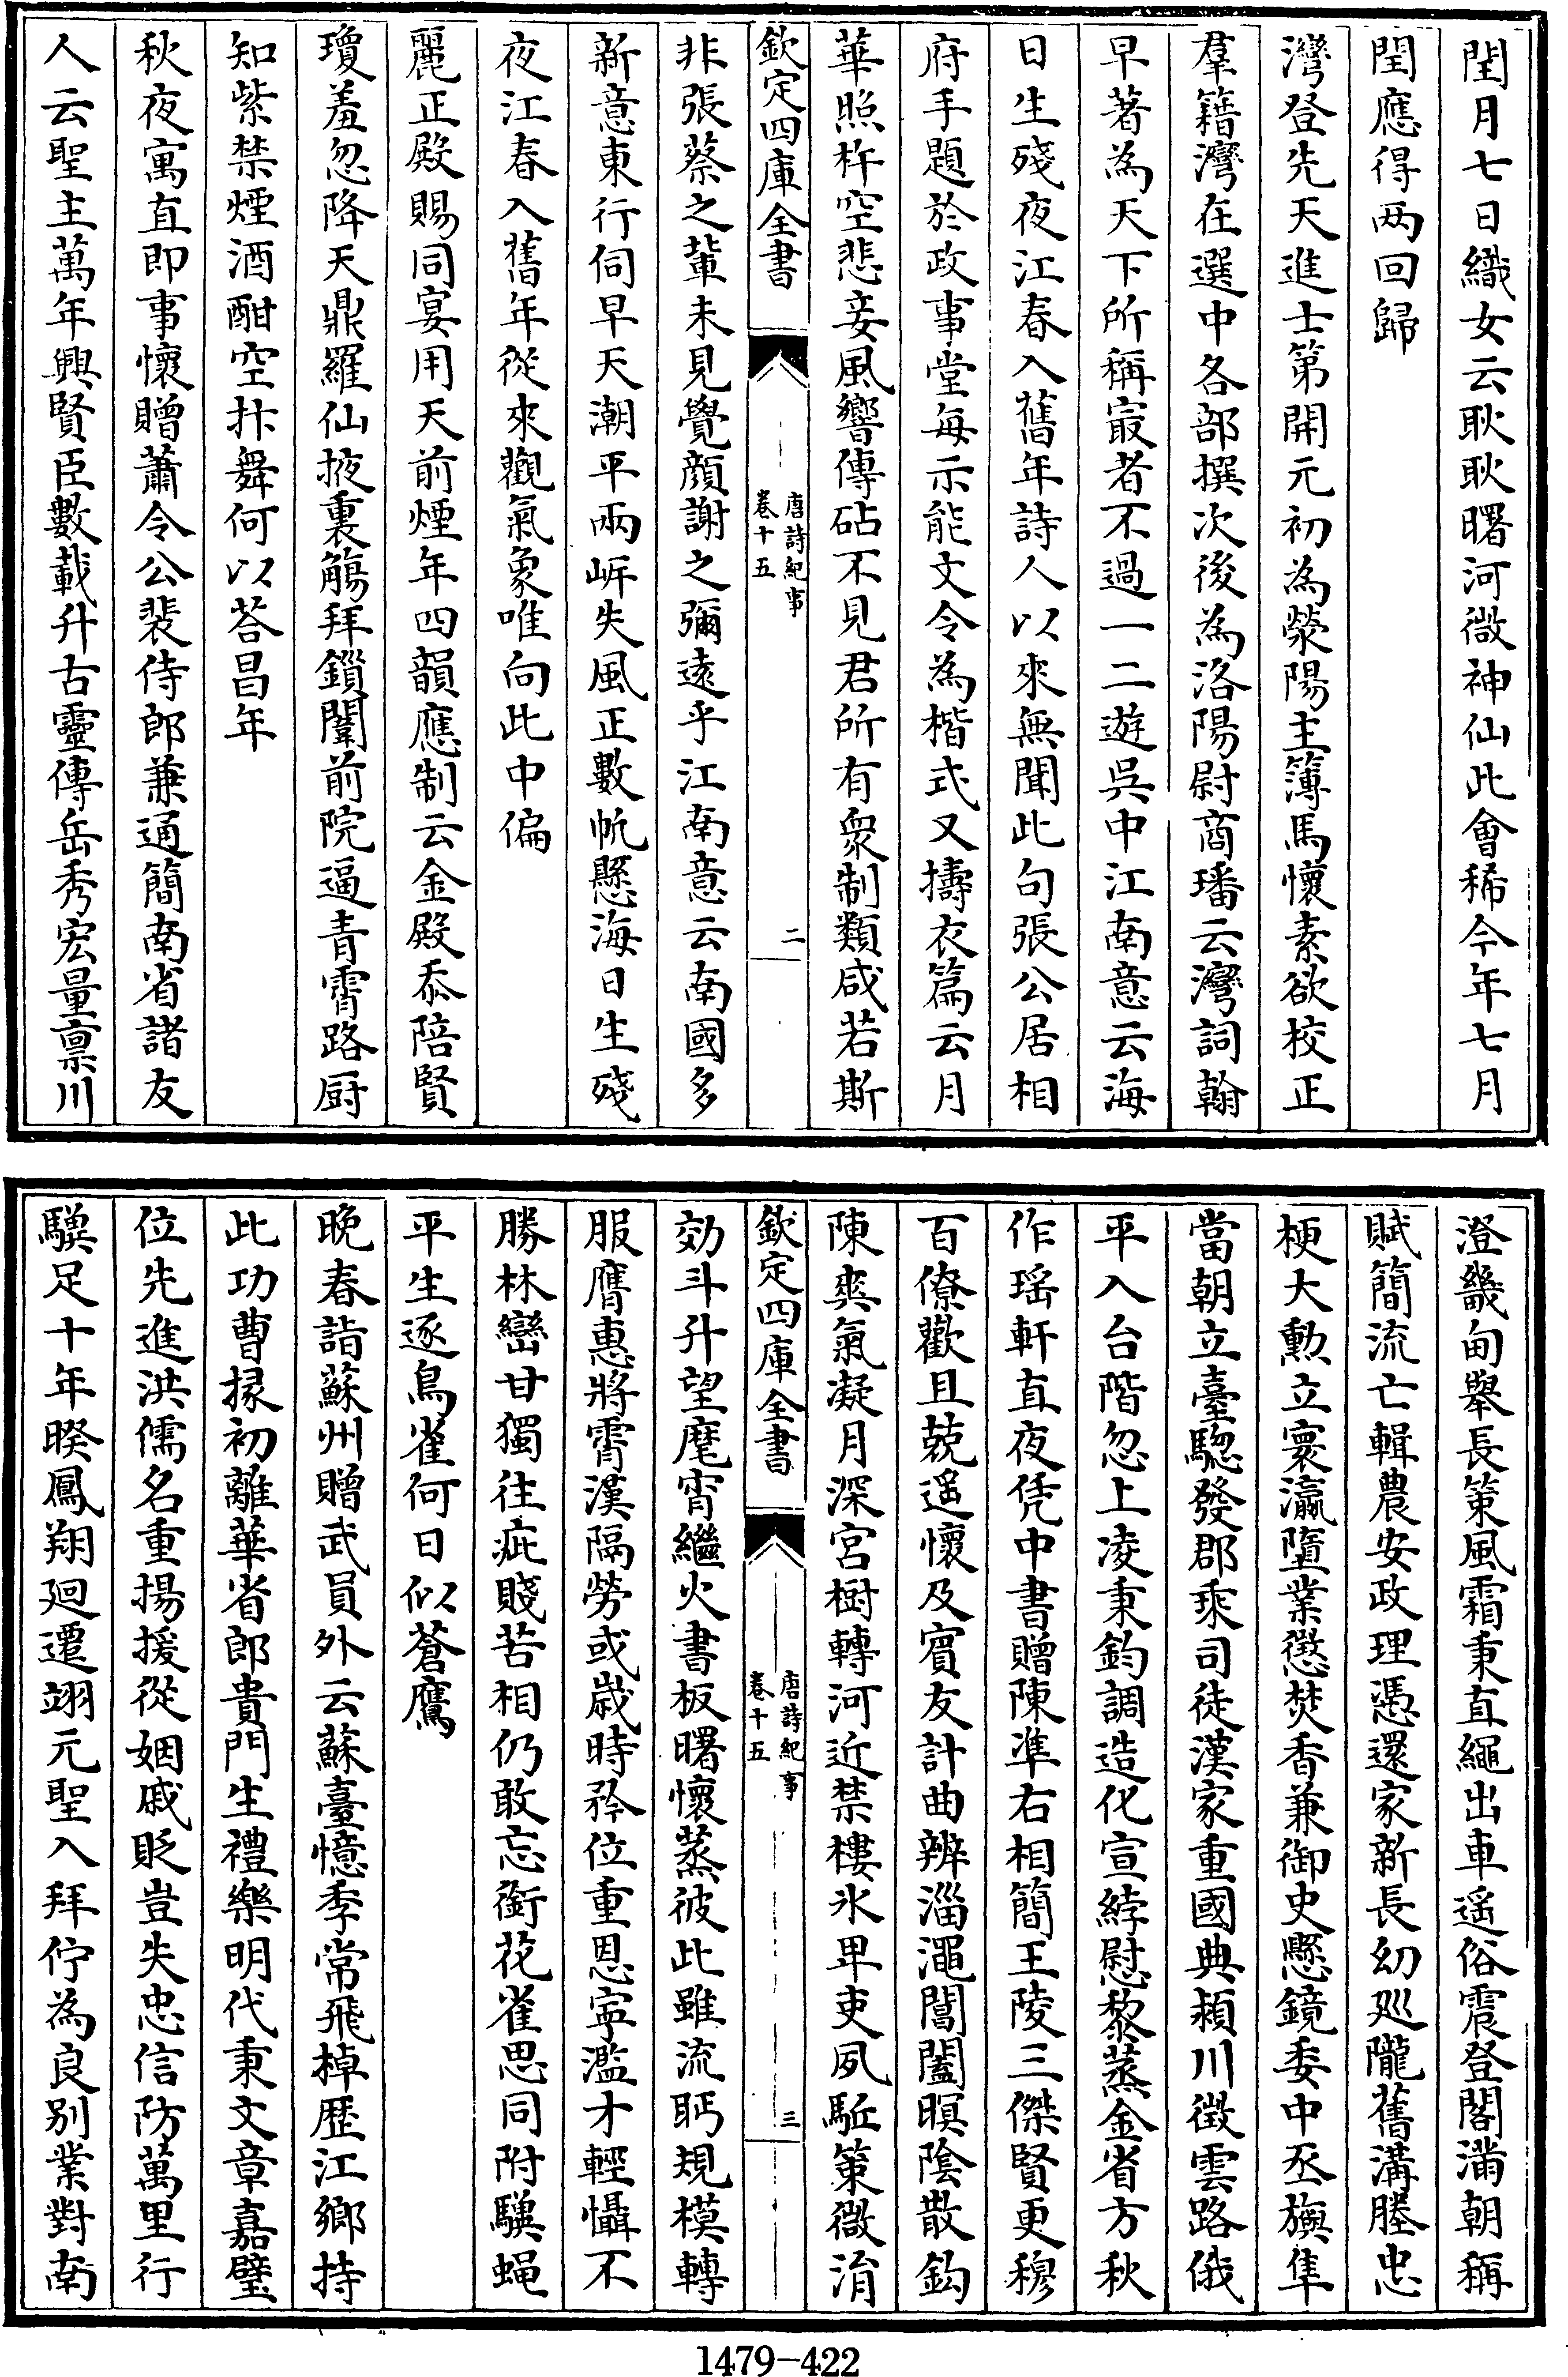 閏月七日織女云耿耿曙河微神仙此會稀今年七月
閏應得两回歸
灣登先天進士第開元初為滎陽主簿馬懷素欲校正
羣籍灣在選中各部撰次後為洛陽尉商璠云灣詞翰
早著為天下所稱㝡者不過一二遊吳中江南意云海
日生殘夜江春入舊年詩人以來無聞此句張公居相
府手題於政事堂每示能文令為楷式又擣衣篇云月
華照杵空悲妾風響傳砧不見君所有衆制類咸若斯
欽定四庫全書
唐詩紀事
卷十五
二
非張蔡之輩未見覺顔謝之彌逺乎江南意云南國多
新意東行伺早天潮平兩岍失風正數帆懸海日生殘
夜江春入舊年從來觀氣象唯向此中偏
麗正殿賜同宴用天前煙年四韻應制云金殿忝陪賢
瓊羞忽降天鼎羅仙掖裏觴拜鎖闈前院逼青霄路厨
知紫禁煙酒酣空抃舞何以荅昌年
秋夜寓直即事懷贈蕭令公裴侍郎兼通簡南省諸友
人云聖主萬年興賢臣數載升古靈傳岳秀宏量禀川
澄畿甸舉長策風霜秉直繩出車遥俗震登閣滿朝稱
賦簡流亡輯農安政理憑還家新長幼廵隴舊溝塍忠
梗大勲立寰瀛墮業懲焚香兼御史懸鏡委中丞旟隼
當朝立臺驄發郡乘司徒漢家重國典頴川徵雲路俄
平入台階忽上凌秉鈞調造化宣綍慰黎蒸金省方秋
作瑶軒直夜凭中書贈陳凖右相簡王陵三傑賢更穆
百僚歡且兢遥懷及賓友計曲辨淄澠閶闔暝陰散鈎
陳爽氣凝月深宫樹轉河近禁樓氷卑吏夙駈策微涓
効斗升望麾宵繼火書板曙懷蒸彼此雖流眄規模轉
服膺惠將霄漢隔勞或歳時矜位重恩寜濫才輕懾不
勝林巒甘獨往疵賤苦相仍敢忘銜花雀思同附驥蝇
平生逐鳥雀何日似蒼鷹
晚春詣蘇州贈武員外云蘇臺憶季常飛棹歴江鄉持
此功曹掾初離華省郎貴門生禮樂明代秉文章嘉璧
位先進洪儒名重揚援從姻戚貶豈失忠信防萬里行
驥足十年暌鳳翔迴遷翊元聖入拜佇為良别業對南
1479-422